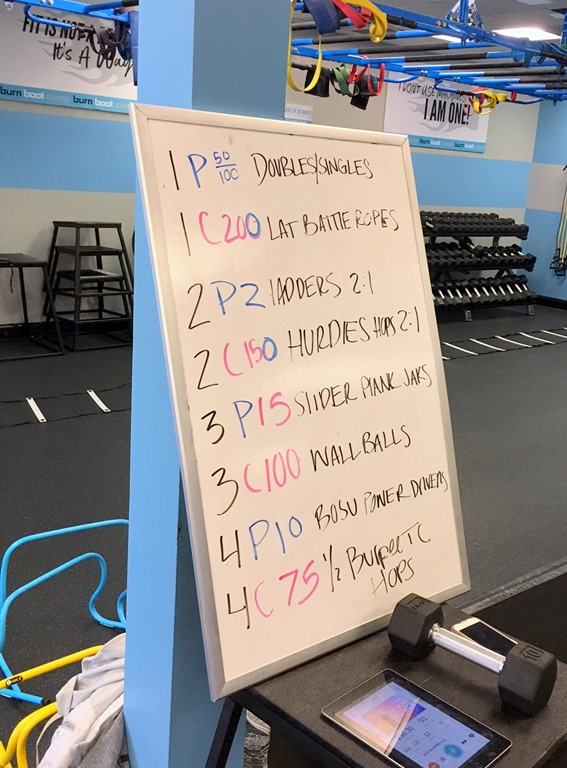 FIT IS NOT A
It's A Way
burn boot camp burn boot
I DON'T USE MACHINES
I AM ONE!
burn boot
1 P 50/100 DOUBLES/SINGLES
1 C200 LAT BATTLE ROPES
2 P2 lADDERS 2:1
2 C150 HURDlES HOPS 2:1
3 P15 SlIDER PlANK JAKS
3 C100 WALL BALLS
4 P10 BOSU POWER DRIVERS
4 C75 1/2 BURPEE TC
HOPS